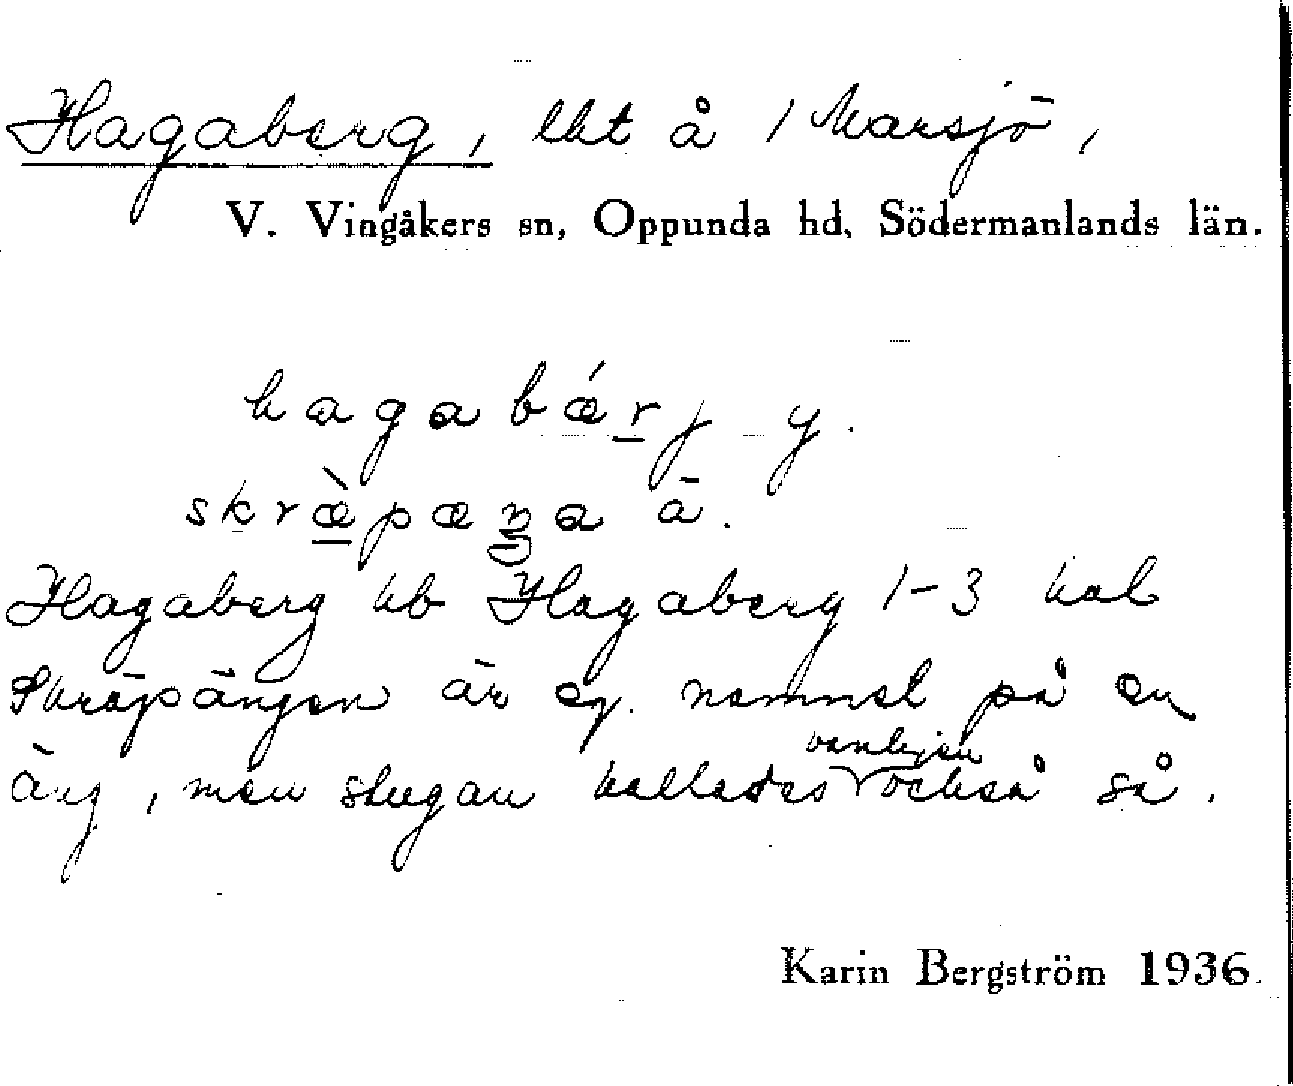 Hagaberg, lht å 1 Marsjö,
V. Vingåkers sn, Oppunda hd, Södermanlands län.
hagabǽrj y.
skræ̀pæŋa ā.
Hagaberg kb Hagaberg 1-3 kal
Skräpängen är eg. namnet på en
äng, men stugan kallades vanligen också så.
Karin Bergström 1936.